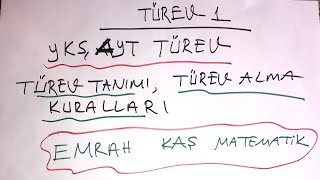 TÜREV 1
YKS, AYT TÜREV
TÜREV TANIMI, TÜREV ALMA
KURALLARI
EMRAH KAŞ MATEMATİK